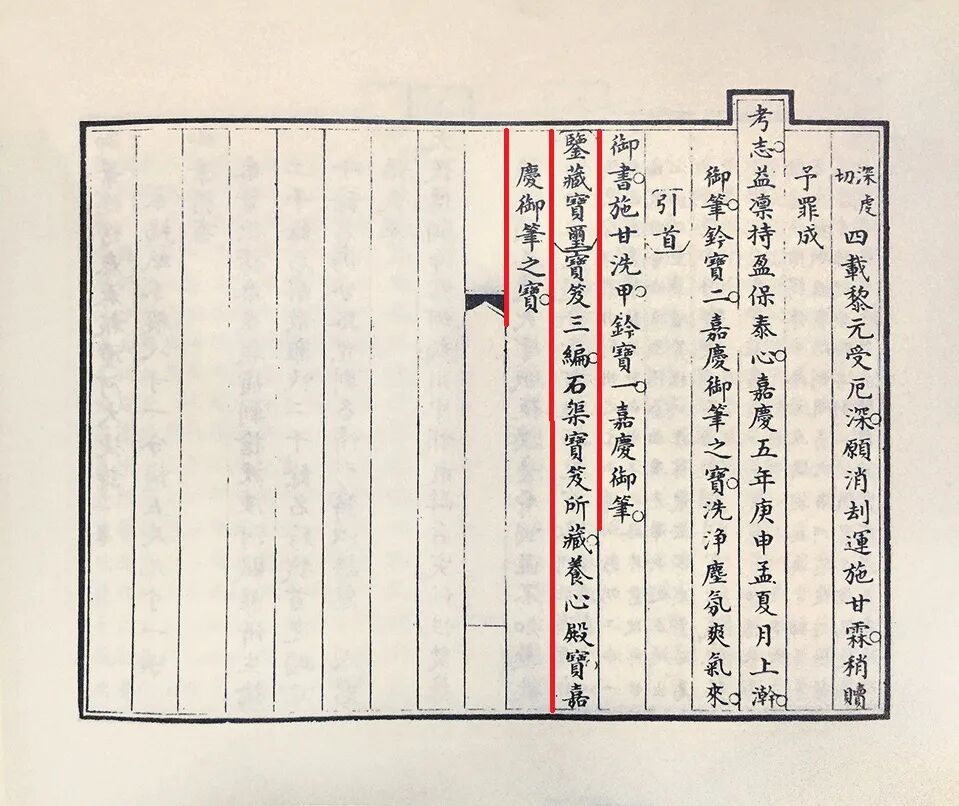 深虔切四載黎元受厄深願消刦運施甘霖稍贖
予罪成
考志益凛持盈保泰心嘉慶五年庚申孟夏月上澣
御筆鈐寶二嘉慶御筆之寶洗淨塵氛爽氣來
引首
御書施甘洗甲鈐寶一嘉慶御筆
鑒藏寶璽寶笈三編石渠寶笈所藏養心殿寶嘉
慶御筆之寶